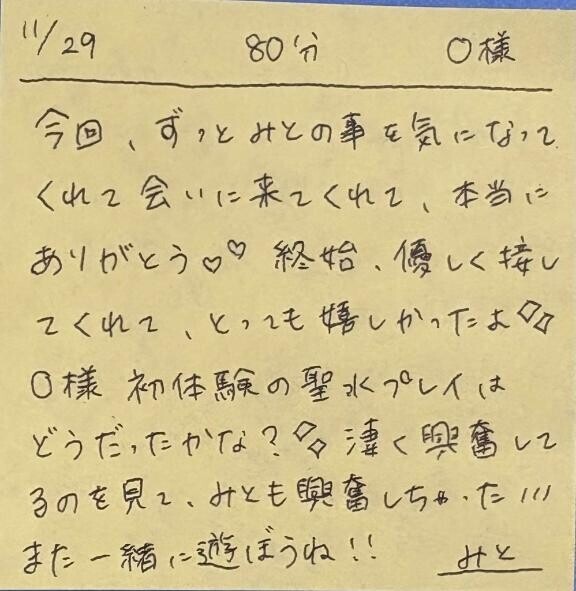 11/29 80分 〇様
今回、ずっとみとの事を気になって
くれて会いに来てくれて、本当に
ありがとう♡♡ 終始、優しく接し
てくれて、とっても嬉しかったよ◇◇
〇様 初体験の聖水プレイは
どうだったかな?◇◇ 凄く興奮して
るのを見て、みとも興奮しちゃった!!!
また一緒に遊ぼうね!! みと